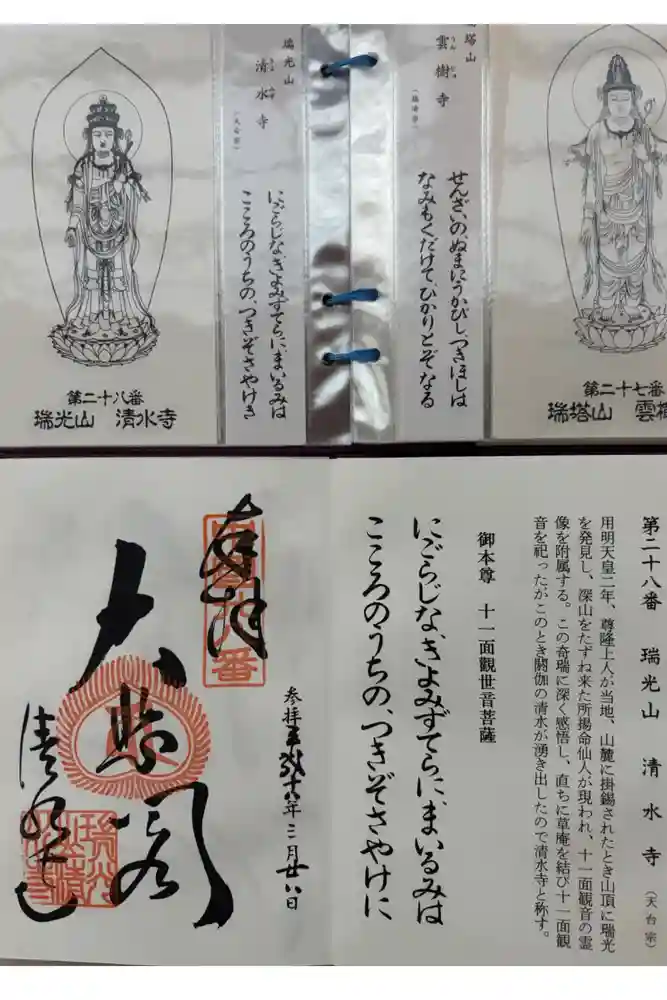 塔山
雲樹寺
うんじゅ
(臨済宗)
せんざいの、ぬまにうかびし、つきほしは
なみもくだけて、ひかりとぞなる
第二十七番
瑞塔山　雲樹
瑞光山
清水寺
(天台宗)
にごらじな、きよみずてらに、まいるみは
こころのうちの、つきぞさやけき
第二十八番
瑞光山　清水寺
第二十八番　瑞光山　清水寺（天台宗）
用明天皇二年、尊隆上人が当地、山麓に掛錫されたとき山頂に瑞光
を発見し、深山をたずね来た所揚命仙人が現われ、十一面観音の霊
像を附属する。この奇瑞に深く感悟し、直ちに草庵を結び十一面観
音を祀ったがこのとき閼伽の清水が湧き出したので清水寺と称す。
御本尊　十一面觀世音菩薩
にごらじな、きよみずてらに、まいるみは
こころのうちの、つきぞさやけに
奉拝
参拝平成十六年三月廿八日
大悲閣
清水寺